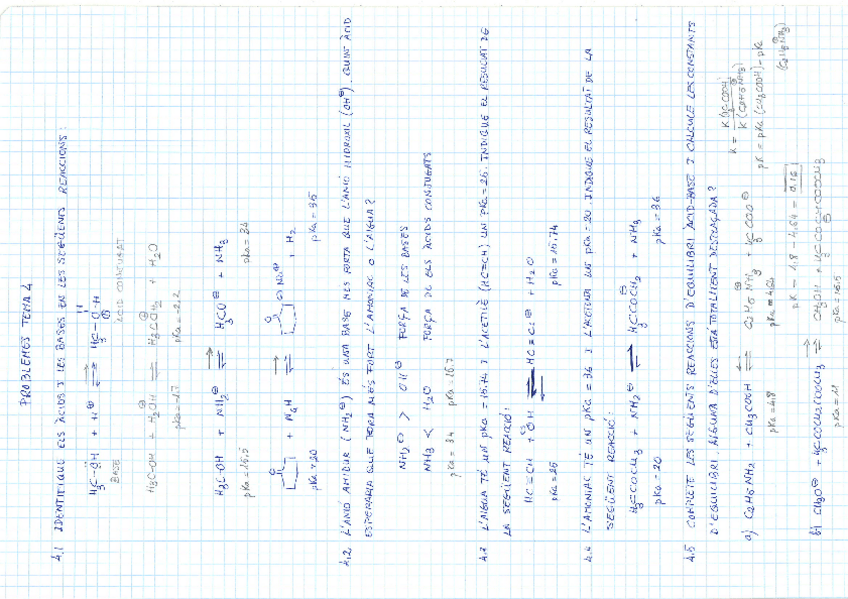 PROBLEMES TEMA 4
4.1 IDENTIFIQUE ELS ÀCIDS I LES BASES EN LES SEGÜENTS REACCIONS:
H3C-OH + H⊕ ⇌ H3C-O-H
BASE ACID CONJUGAT
H3C-OH + H2OH ⇌ H3COH2 + H2O
pKa=-1.7 pKa=-2.2
H3C-OH + NH2⊖ ⇌ H3CO⊖ + NH3
pKa=15.5 pKa=34
+ NaH ⇌ O Na⊕ + H2
pKa≈20 pKa=35
4.2. L'ANIÓ AMIDUR (NH2⊖) ÉS UNA BASE MÉS FORTA QUE L'ANIÓ HIDROXIL (OH⊖). QUIN ÀCID
ESPERARIA QUE FORA MÉS FORT L'AMONIAC O L'AIGUA?
NH2⊖ > OH⊖ FORÇA DE LES BASES
NH3 < H2O FORÇA DE ELS ÀCIDS CONJUGATS
pKa=34 pKa=15.7
4.3 L'AIGUA TÉ UN pKa=15.74 I L'ACETILÉ (HC≡CH) UN pKa=25. INDIQUE EL RESULTAT DE
LA SEGÜENT REACCIÓ:
HC≡CH + OH ⇌ HC≡C:⊖ + H2O
pKa=25 pKa=15.74
4.4 L'AMONIAC TÉ UN pKa=36 I L'ACETONA UN pKa=20. INDIQUE EL RESULTAT DE LA
SEGÜENT REACCIÓ:
H3CCOCH3 + NH2⊖ ⇌ H3CCOCH2 + NH3
pKa=20 pKa=36
4.5 COMPLETE LES SEGÜENTS REACCIONS D'EQUILIBRI ÀCID-BASE I CALCULE LES CONSTANTS
D'EQUILIBRI. ALGUNA D'ELLES ESTÀ TOTALMENT DESPLAÇADA?
a) C6H5NH2 + CH3COOH ⇌ C6H5NH3 + H3CCOO⊖
pKa=4.8 pKa=4.64
pK = pKa (CH3COOH) - pKa (C6H5NH3)
pK = 4.8 - 4.64 = 0.16
b) CH3O⊖ + H3CCOCH2COOCH3 ⇌ CH3OH + H3CCOCHCOOCH3
pKa=11 pKa=15.5